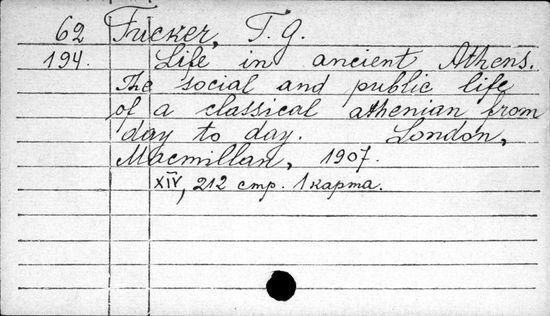 62 Tucker, T. G.
194. Life in ancient Athens.
The social and public life
of a classical athenian from
day to day. London,
Macmillan, 1907.
XIV, 212 стр. 1 карта.